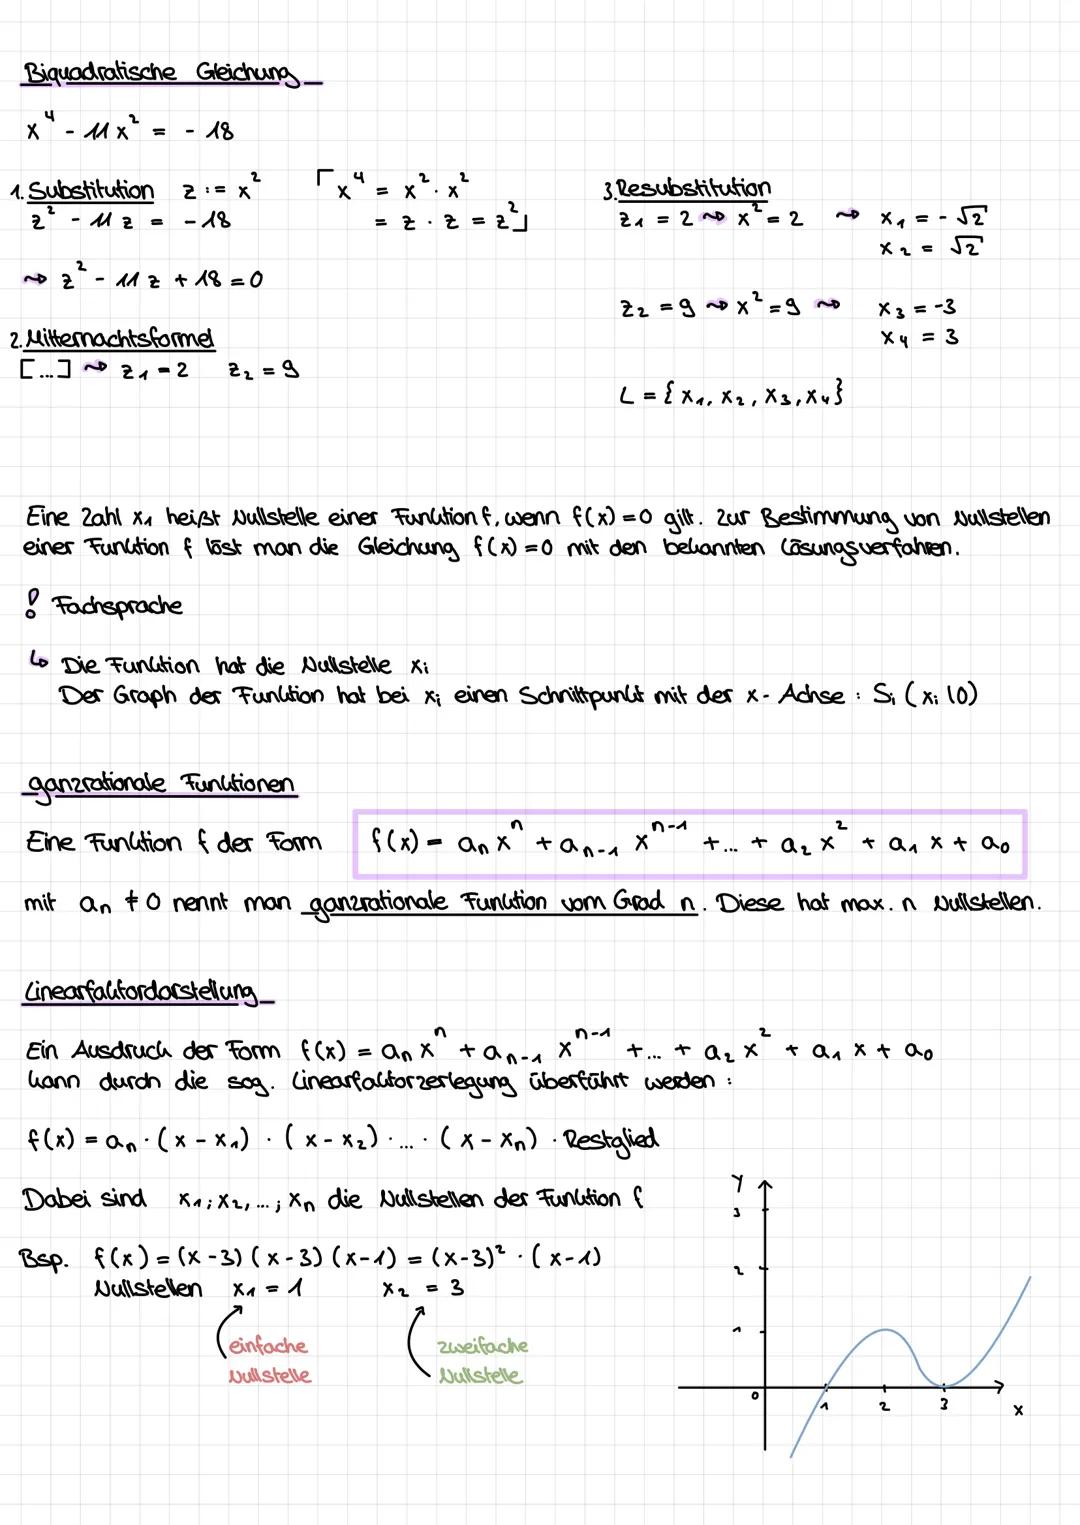 Biquadratische Gleichung
x⁴ - 11x² = - 18
1. Substitution z := x² ⌈x⁴ = x² · x²
z² - 11z = - 18 = z · z = z²⌋
⇝ z² - 11z + 18 = 0
2. Mitternachtsformel
[...] ⇝ z₁ = 2 z₂ = 9
3. Resubstitution
z₁ = 2 ⇝ x² = 2 ⇝ x₁ = - √2
x₂ = √2
z₂ = 9 ⇝ x² = 9 ⇝ x₃ = -3
x₄ = 3
L = { x₁, x₂, x₃, x₄}
Eine Zahl x₁ heißt Nullstelle einer Funktion f, wenn f(x) = 0 gilt. Zur Bestimmung von Nullstellen
einer Funktion f löst man die Gleichung f(x) = 0 mit den bekannten Lösungsverfahren.
! Fachsprache
↳ Die Funktion hat die Nullstelle xᵢ
Der Graph der Funktion hat bei xᵢ einen Schnittpunkt mit der x - Achse : Sᵢ (xᵢ | 0)
ganzrationale Funktionen
Eine Funktion f der Form f(x) = aₙxⁿ + aₙ₋₁ xⁿ⁻¹ + ... + a₂x² + a₁x + a₀
mit aₙ ≠ 0 nennt man ganzrationale Funktion vom Grad n. Diese hat max. n Nullstellen.
Linearfaktordarstellung
Ein Ausdruck der Form f(x) = aₙxⁿ + aₙ₋₁ xⁿ⁻¹ + ... + a₂x² + a₁x + a₀
kann durch die sog. Linearfaktorzerlegung überführt werden :
f(x) = aₙ · (x - x₁) · ( x - x₂) · ... · ( x - xₙ) · Restglied
Dabei sind x₁; x₂, ... ; xₙ die Nullstellen der Funktion f
Bsp. f(x) = (x - 3) ( x - 3) (x - 1) = (x-3)² · ( x - 1)
Nullstellen x₁ = 1 x₂ = 3
einfache zweifache
Nullstelle Nullstelle
y
3
2
1
0 1 2 3 x